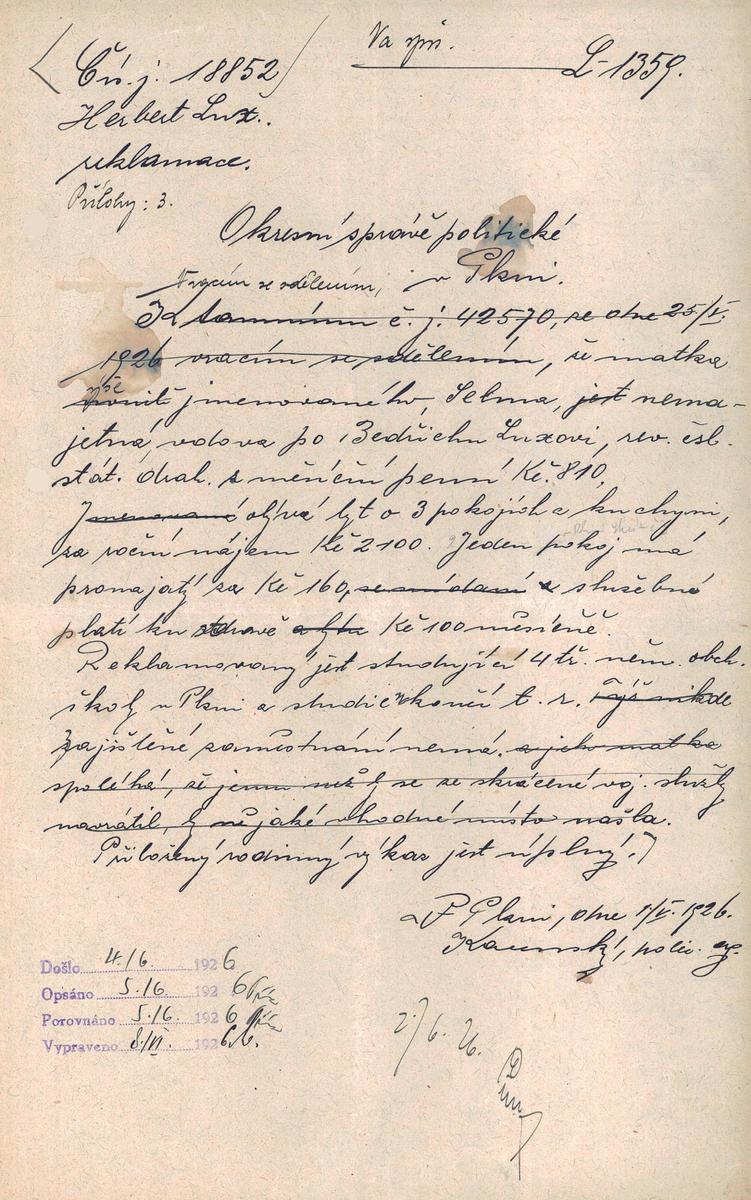 Na spis.
Čís. j. 18852 L-1359.
Herbert Lux.
reklamace.
Přílohy: 3.
Okresní správě politické
Vracím se sdělením, v Plzni.
K tamnímu č. j. 42570, ze dne 25/V.
1926 vracím se sdělením, že matka
výše
jmenovaného, Selma, jest nema-
jetná, vdova po Bedřichu Luxovi, rev. čsl.
stát. drah. s měsíční pensí Kč. 810,
Jmenovaná obývá byt o 3 pokojích a kuchyni,
za roční nájem Kč 2100. Jeden pokoj má
pronajatý za Kč 160, se snídaní a služebné
platí ku stravě a bytu Kč 100 měsíčně.
Reklamovaný jest studující 4 tř. něm. obch.
školy v Plzni a studie končí t. r. Týž nikde
zajištěné zaměstnání nemá. a jeho matka
spoléhá, že jemu než by se ze zkrácené voj. služby
navrátil, by nějaké vhodné místo našla.
Přiložený rodinný výkaz jest úplný.
V Plzni, dne 1/VI. 1926.
polic.
Došlo 4./6. 1926
Opsáno 5./6. 1926
Porovnáno 5./6. 1926
Vypraveno 8./VI. 1926
2./6. 26.